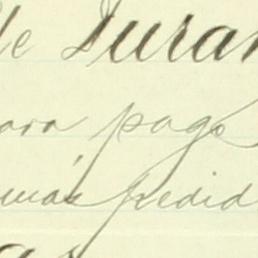 de Duran
para pago
más pedid